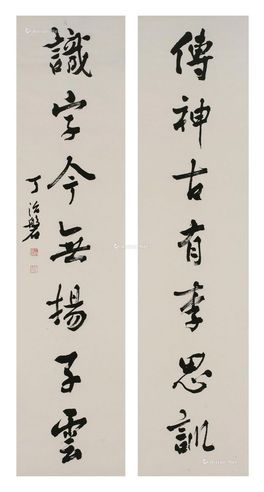 傳神古有李思訓
識字今無揚子雲
丁治磐